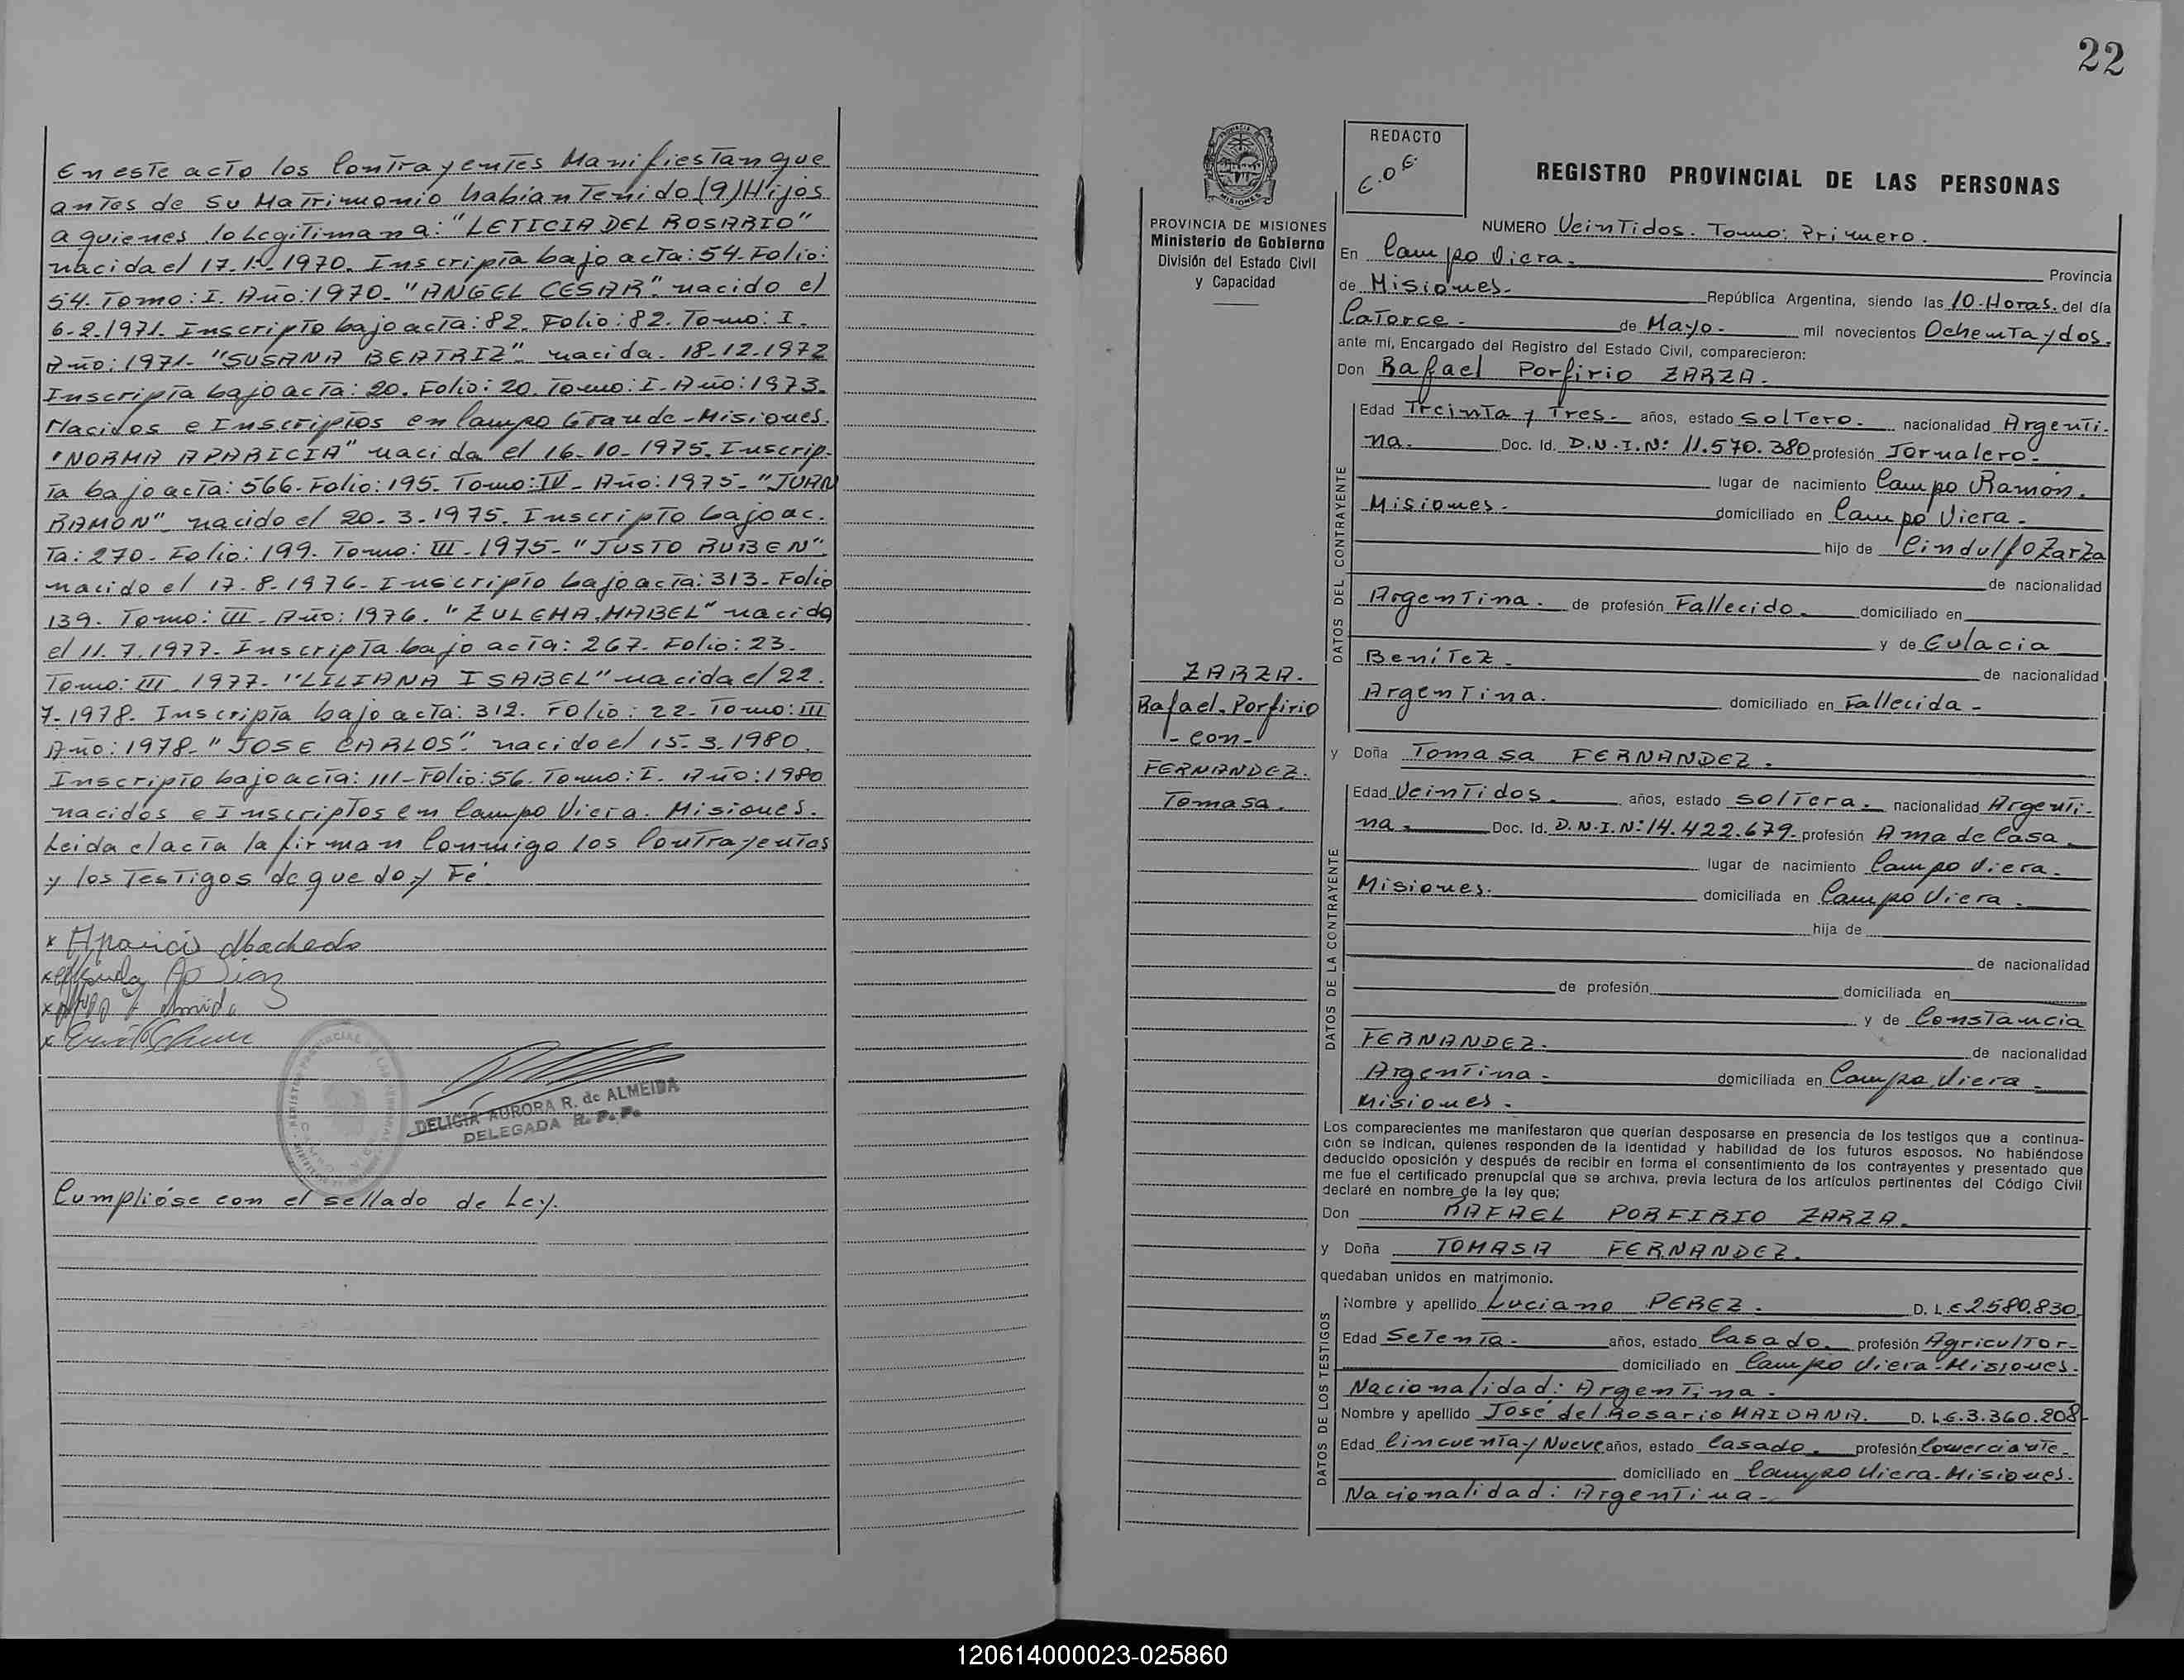 En este acto los Contrayentes Manifiestan que
antes de su Matrimonio habian Tenido (9) Hijos
a quienes lo Legitiman a: "LETICIA DEL ROSARIO"
nacida el 17.1.-1970. Inscripta bajo acta: 54. Folio:
54. Tomo: I. Año: 1970. "ANGEL CESAR". nacido el
6-2-1971. Inscripto bajo acta: 82. Folio: 82. Tomo: I.
Año: 1971. "SUSANA BEATRIZ" nacida. 18-12-1972
Inscripta bajo acta: 20. Folio: 20. Tomo: I. Año: 1973.
Nacidos e Inscriptos en Campo Grande-Misiones.
"NORMA APARICIA" nacida el 16-10-1975. Inscrip-
ta bajo acta: 566. Folio: 195. Tomo: IV. Año: 1975. "JUAN
RAMON". nacido el 20-3-1975. Inscripto bajo ac.
ta: 270. Folio: 199. Tomo: III. 1975. "JUSTO RUBEN"
nacido el 17-8-1976. Inscripto bajo acta: 313. Folio
139. Tomo: III. Año: 1976. "ZULEMA MABEL" nacida
el 11.7.1977. Inscripta bajo acta: 267. Folio: 23.
Tomo: III. 1977. "LILIANA ISABEL" nacida el 22.
7-1978. Inscripta bajo acta: 312. Folio: 22. Tomo: III
Año: 1978. "JOSE CARLOS". nacido el 15-3-1980.
Inscripto bajo acta: 111-Folio: 56. Tomo: I. Año: 1980
nacidos e Inscriptos en Campo Viera. Misiones.
Leida el acta la firman Conmigo los Contrayentes
y los Testigos de que doy Fé.
x Aparicio Machado
DELICIA AURORA R. de ALMEIDA
DELEGADA R. P. P.
Cumplióse con el sellado de Ley.
22
REDACTO
E.O.E.
REGISTRO PROVINCIAL DE LAS PERSONAS
PROVINCIA DE MISIONES
Ministerio de Gobierno
División del Estado Civil
y Capacidad
NUMERO Veintidos. Tomo: Primero.
En Campo Viera. Provincia
de Misiones. República Argentina, siendo las 10-Horas. del día
Catorce. de Mayo. mil novecientos Ochenta y dos.
ante mi, Encargado del Registro del Estado Civil, comparecieron:
Don Rafael Porfirio ZARZA.
DATOS DEL CONTRAYENTE
Edad Treinta y Tres. años, estado Soltero. nacionalidad Argenti-
na. Doc. Id. D.N.I.Nº 11.570.380 profesión Jornalero.
lugar de nacimiento Campo Ramón.
Misiones. domiciliado en Campo Viera.
hijo de Cindulfo Zarza
de nacionalidad
Argentina. de profesión Fallecido. domiciliado en
y de Eulacia
Benítez. de nacionalidad
Argentina. domiciliado en Fallecida.
ZARZA.
Rafael. Porfirio
-con-
FERNANDEZ.
Tomasa.
y Doña Tomasa FERNANDEZ.
DATOS DE LA CONTRAYENTE
Edad Veintidos. años, estado Soltera. nacionalidad Argenti-
na. Doc. Id. D.N.I.Nº 14.422.679. profesión Ama de Casa
lugar de nacimiento Campo Viera.
Misiones. domiciliada en Campo Viera.
hija de
de nacionalidad
de profesión domiciliada en
y de Constancia
FERNANDEZ. de nacionalidad
Argentina. domiciliada en Campo Viera.
Misiones.
Los comparecientes me manifestaron que querían desposarse en presencia de los testigos que a continua-
ción se indican, quienes responden de la identidad y habilidad de los futuros esposos. No habiéndose
deducido oposición y después de recibir en forma el consentimiento de los contrayentes y presentado que
me fue el certificado prenupcial que se archiva, previa lectura de los artículos pertinentes del Código Civil
declaré en nombre de la ley que;
Don RAFAEL PORFIRIO ZARZA.
y Doña TOMASA FERNANDEZ.
quedaban unidos en matrimonio.
DATOS DE LOS TESTIGOS
Nombre y apellido Luciano PEREZ. D. L.E 2.580.830
Edad Setenta. años, estado Casado. profesión Agricultor.
domiciliado en Campo Viera-Misiones.
Nacionalidad: Argentina.
Nombre y apellido José del Rosario MAIDANA. D. L.E. 3.360.208
Edad Cincuenta y Nueve años, estado Casado. profesión Comerciante.
domiciliado en Campo Viera-Misiones.
Nacionalidad: Argentina.
120614000023-025860